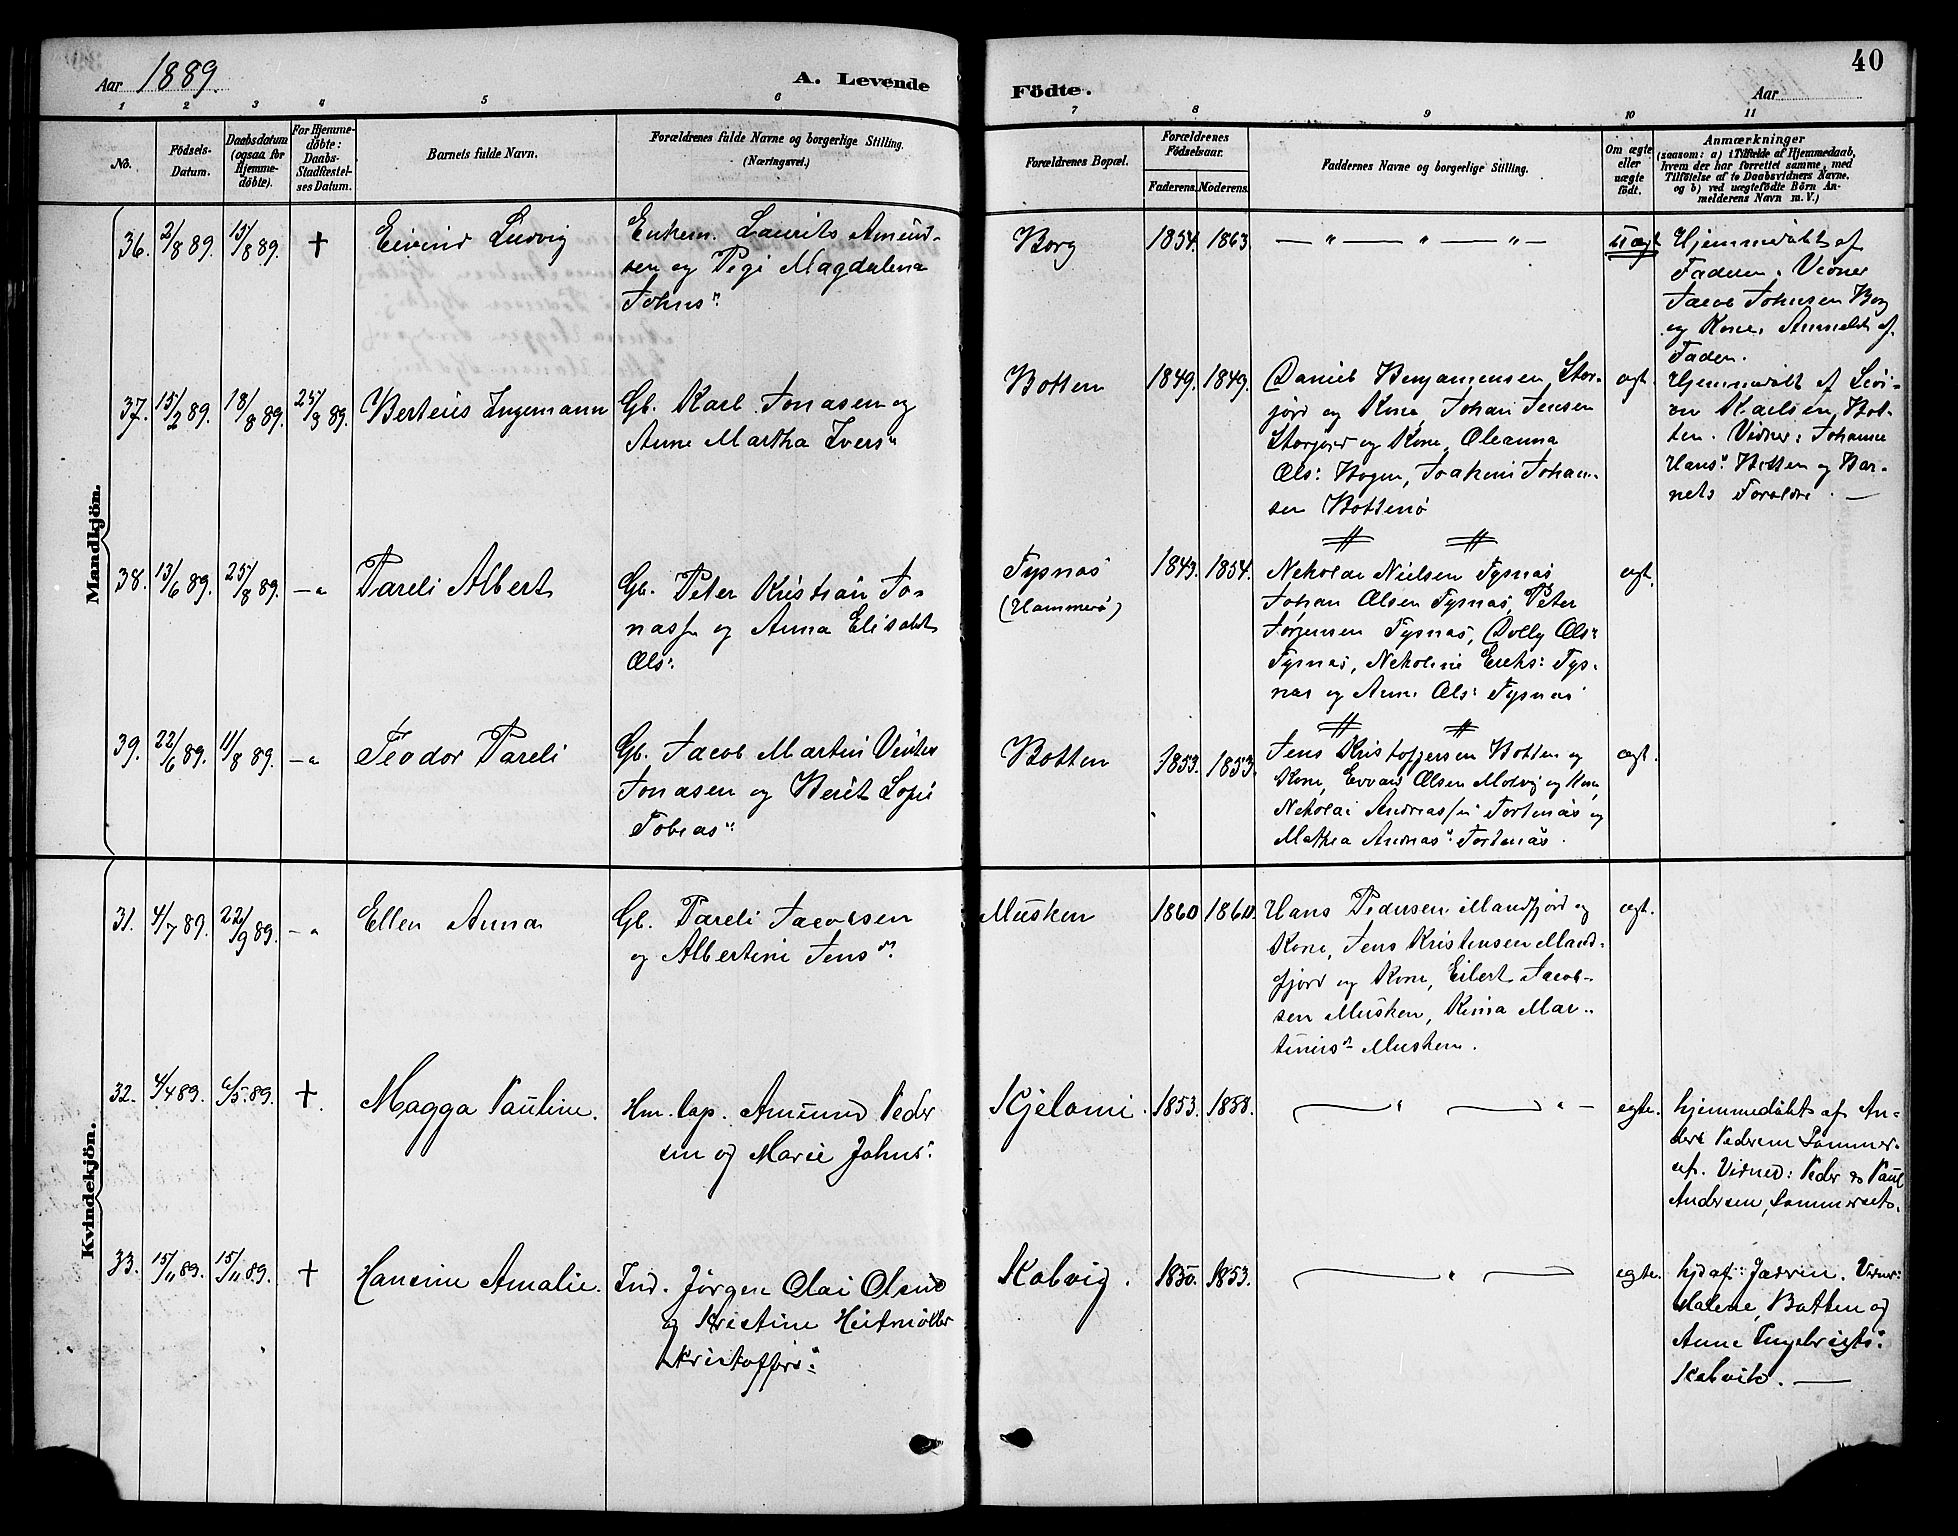 Aar 1889.
A. Levende
Födte.
40
Aar
1 2 3 4 5 6 7 8 9 10 11
No.
Födsels-
Datum.
Daabsdatum
(ogsaa for
Hjemme-
döbte).
For Hjemme-
döbte:
Daabs-
Stadfæstel-
ses Datum.
Barnets fulde Navn.
Forældrenes fulde Navne og borgerlige Stilling.
(Næringsvei.)
Forældrenes Bopæl.
Forældrenes
Födselsaar.
Faderens. Moderens.
Faddernes Navne og borgerlige Stilling.
Om ægte
eller
uægte
födt.
Anmærkninger
(saasom: a) i Tilfælde af Hjemmedaab,
hvem der har forrettet samme, med
Tilföielse af to Daabsvidners Navne.
og b) ved uægtefödte Börn An-
melderens Navn m. V.)
Mandkjön.
36. 2/8 89. 15/8 89. † Eivind Ludvig
Enkem. Laurits Amund-
sen og Pegi Magdalena
Johns"
Borg 1854. 1863. — " — " — " —
uægt
Hjemmedöbt af
Faderen. Vidner
Jacob Johnsen Borg
og Kone. Anmeldt af
Faderen.
37. 15/2 89. 18/8 89. 25/8 89. Berteus Ingemann
Gb. Karl Jonasen og
Anne Martha Ivers"
Botten 1849. 1849.
Daniel Benjamensen Stor-
jord og Kone, Johan Jensen
Storjord og Kone, Oleanna
Ols: Hogen, Joakim Johan-
sen Bottenö
ægt.
Hjemmedöbt af
Karlsen, Bot-
ten. Vidner: Johanne
Hans" Botten og Bar-
nets Forældre. —
38. 13/6 89. 25/8 89. — " Pareli Albert
Gb. Peter Kristian Jo-
nassn og Anna Elisabet
Ols:
Tysnæs
(Hammerö)
1843. 1854.
Nekolai Nielsen Tysnæs
Johan Olsen Tysnæs, Peter
Jörgensen Tysnæs, Dolly Ols:
Tysnæs, Nekoline Ereks: Tys-
næs og Anne Ols: Tysnæs
ægt.
39. 22/6 89. 11/8 89. — " Teodor Pareli
Gb. Jacob Martin Venter
Jonasen og Berit Sofie
Tobias"
Botten 1853. 1853.
Jens Kristoffersen Botten og
Kone, Edvard Olsen Molvig og Kone,
Nekolai Andreassen Tortenæs og
Mathea Andreas" Tortenæs.
ægt.
Kvindekjön.
31. 4/7 89. 22/9 89. — " Ellen Anna
Gb. Pareli Jacobsen
og Albertine Jens"
Musken 1860 1860.
Hans Pedersen Mandfjord og
Kone, Jens Kristensen Mand-
fjord og Kone, Eilert Jacob-
sen Musken, Kima Mar-
tinus" Musken.
ægt.
32. 4/4 89. 6/5 89. †. Magga Pauline.
Hm. lap. Amund Peder
sen og Marie Johns:
Kjelomi. 1853. 1858. — " — " —
egte.
hjemmedöbt af An-
ders Pedersen Sommer-
set. Vidner: Peder & Paul
Andersen, Sommersets.
33. 15/11 89. 15/11 89. † Hansine Amalie.
Ind. Jörgen Olai Olsen
og Kristine Heitmöller
Kristoffers:
Kalvig. 1850. 1853. — " —
egte.
hjd af: Jadren. Vidner:
Malene, Botten og
Anne Ingebrigts:
Kalvik. —